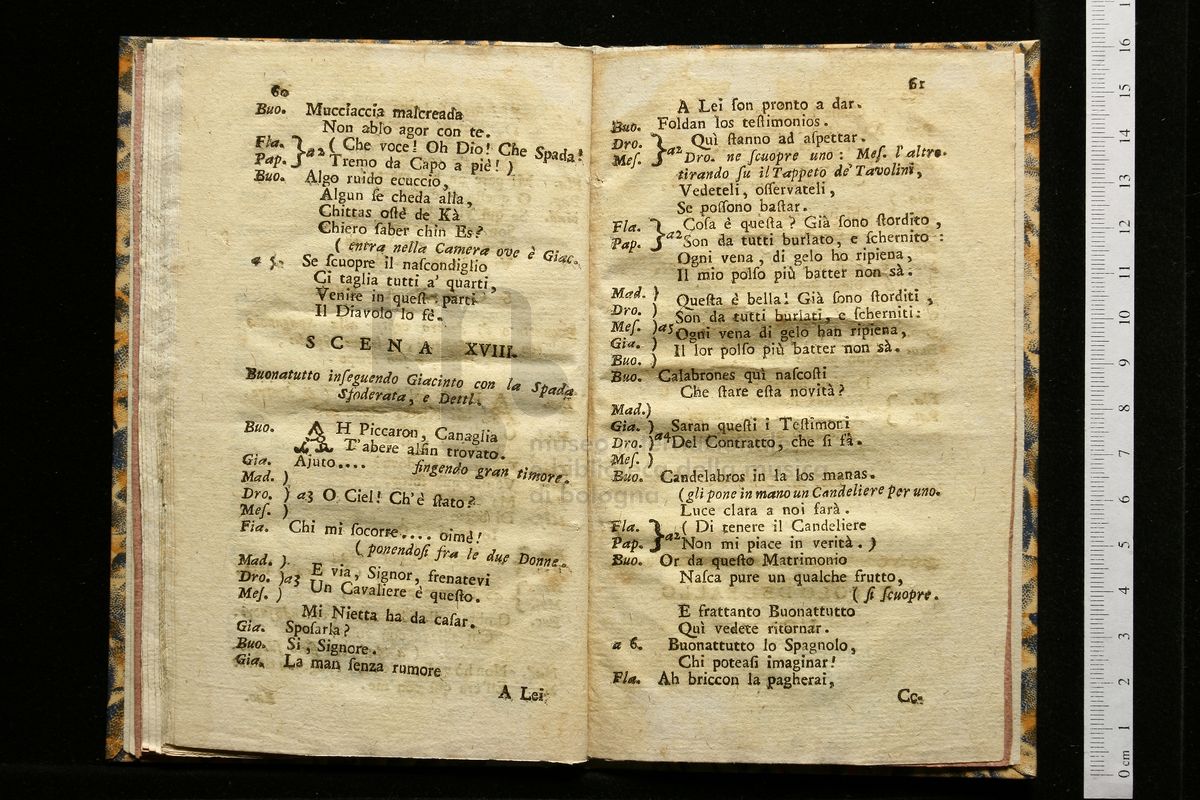 60
Buo. Mucciaccia malcreada
Non ablo agor con te.
Fla. } a2 ( Che voce! Oh Dio! Che Spada!
Pap. Tremo da Capo a piè! )
Buo. Algo ruido ecuccio,
Algun ſe cheda alla,
Chittas oſtè de Kà
Chiero ſaber chin Es?
( entra nella Camera ove è Giac.
a 5. Se ſcuopre il naſcondiglio
Ci taglia tutti a' quarti,
Venire in queſte parti
Il Diavolo lo fè.
SCENA XVIII.
Buonatutto inſeguendo Giacinto con la Spada
Sfoderata, e Detti.
Buo. AH Piccaron, Canaglia
T'abere alfin trovato.
Gia. Ajuto.... fingendo gran timore.
Mad. )
Dro. ) a3 O Ciel! Ch'è ſtato?
Meſ. )
Fia. Chi mi ſocorre.... oimè!
( ponendoſi fra le due Donne.
Mad. ).
Dro. )a3 E via, Signor, frenatevi
Meſ. ) Un Cavaliere è queſto.
Mi Nietta ha da caſar.
Gia. Spoſarla?
Buo. Si, Signore.
Gia. La man ſenza rumore
A Lei
61
A Lei ſon pronto a dar.
Buo. Foldan los teſtimonios.
Dro. } a2 Quì ſtanno ad aſpettar.
Meſ. Dro. ne ſcuopre uno: Meſ. l'altro
tirando ſu il Tappeto de' Tavolini,
Vedeteli, oſſervateli,
Se poſſono baſtar.
Fla. } a2 Coſa è queſta? Già ſono ſtordito,
Pap. Son da tutti burlato, e ſchernito:
Ogni vena, di gelo ho ripiena,
Il mio polſo più batter non sà.
Mad. ) Queſta è bella! Già ſono ſtorditi,
Dro. ) Son da tutti burlati, e ſcherniti:
Meſ. )a5 Ogni vena di gelo han ripiena,
Gia. ) Il lor polſo più batter non sà.
Buo. )
Buo. Calabrones quì naſcoſti
Che ſtare eſta novità?
Mad.)
Gia. ) Saran queſti i Teſtimoni
Dro. )a4 Del Contratto, che ſi fà.
Meſ. )
Buo. Candelabros in la los manas.
( gli pone in mano un Candeliere per uno.
Luce clara a noi farà.
Fla. } a2 ( Di tenere il Candeliere
Pap. Non mi piace in verità. )
Buo. Or da queſto Matrimonio
Naſca pure un qualche frutto,
( ſi ſcuopre.
E frattanto Buonattutto
Quì vedete ritornar.
a 6. Buonattutto lo Spagnolo,
Chi poteaſi imaginar!
Fla. Ah briccon la pagherai,
Cc.